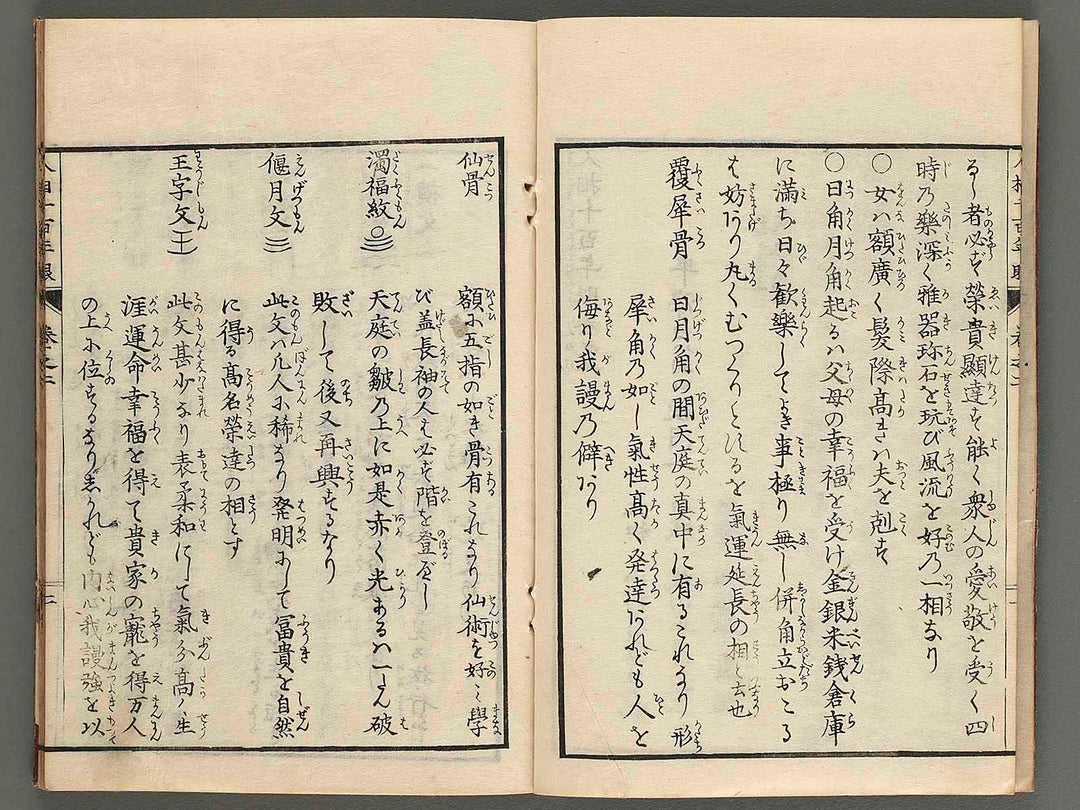 る者必ず榮貴顯達す能く衆人の愛敬を受く四
時乃藥深く雅器珎石を玩び風流を好乃一相なり
〇女ハ額廣く髮際髙きハ夫を剋す
〇日角月角起るハ父母の幸福を受け金銀米銭倉庫
に満ち日々歓樂してよき事極り無し併角立おこる
は妨あり丸くむつくりとせるを氣運延長の相と云也
覆犀骨
日月角の間天庭の真中に有るこれなり形
犀角乃如し氣性髙く発達あれども人を
侮り我謾乃僻あり
仙骨
額に五指の如き骨有これなり仙術を好ミ學
び盖長袖の人は必ず階を登べし
濁福紋
天庭の皺乃上に如是赤く光あるハ一たん破
敗して後又再興するなり
偃月文
此文ハ凡人に稀なり発明にして冨貴を自然
に得る髙名榮達の相とす
王字文
此文甚少なり表柔和にして氣分髙く生
涯運命幸福を得て貴家の寵を得万人
の上に位するなり然れども内心我謾強を以
卷之二